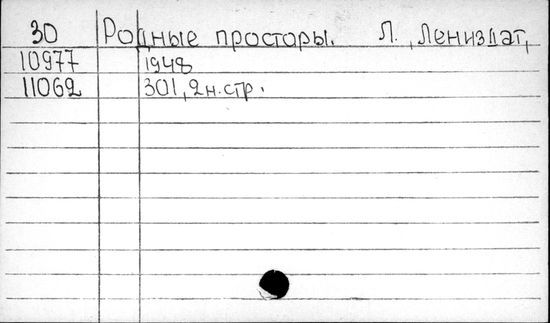 30 Родные просторы. Л., Лениздат,
10977 1948
11062 301, 2 н. стр.